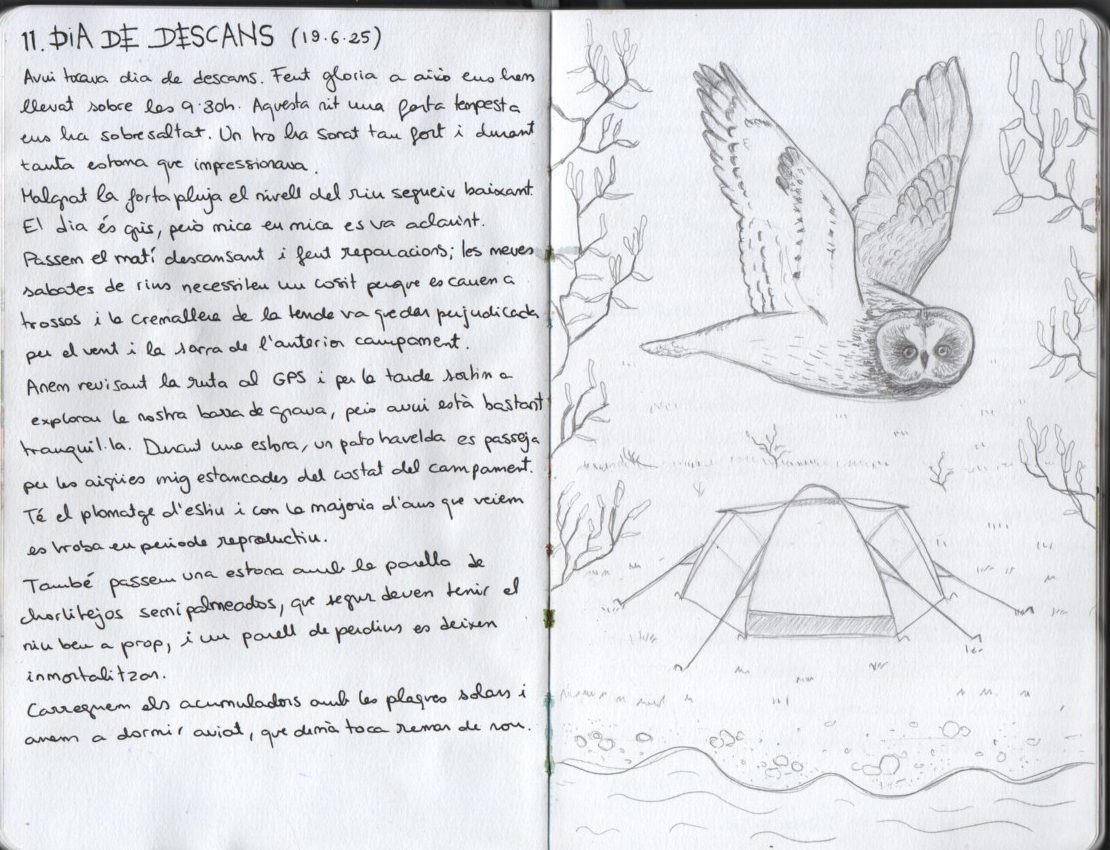 11. DIA DE DESCANS (19.6.25)
Avui tocava dia de descans. Fent gloria a això ens hem
llevat sobre les 9:30h. Aquesta nit una forta tempesta
ens ha sobresaltat. Un tro ha sonat tan fort i durant
tanta estona que impressionava.
Malgrat la forta pluja el nivell del riu segueix baixant.
El dia és gris, però mica en mica es va aclarint.
Passem el matí descansant i fent reparacions; les meves
sabates de rius necessiten un cosit perque es cauen a
trossos i la cremallera de la tenda va quedar perjudicada
per el vent i la sorra de l'anterior campament.
Anem revisant la ruta al GPS i per la tarde sortim a
explorar la nostra barra de grava, però avui està bastant
tranquil·la. Durant una estona, un pato havelda es passeja
per les aigües mig estancades del costat del campament.
Té el plomatge d'estiu i com la majoria d'aus que veiem
es troba en periode reproductiu.
També passem una estona amb la parella de
chorlitejos semipalmeados, que segur deven tenir el
niu ben a prop, i un parell de perdius es deixen
inmortalitzar.
Carreguem els acumuladors amb les plaques solars i
anem a dormir aviat, que demà toca remar de nou.